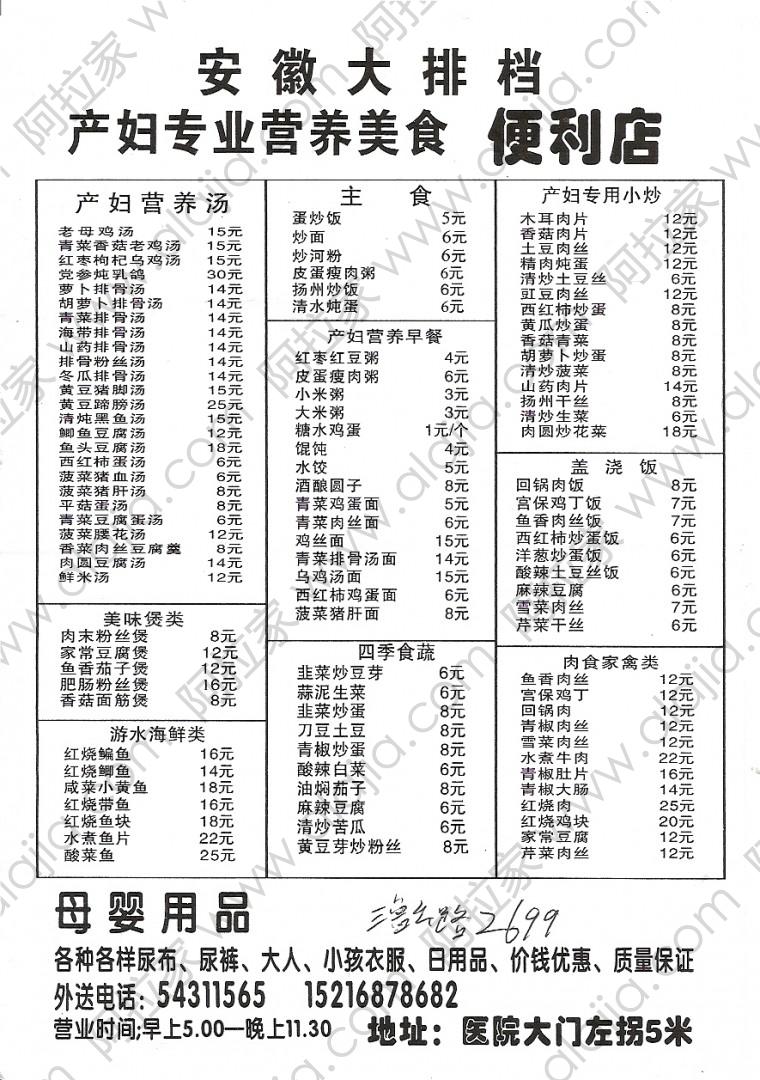 安徽大排档
产妇专业营养美食 便利店
产妇营养汤
老母鸡汤 15元
青菜香菇老鸡汤 15元
红枣枸杞乌鸡汤 15元
党参炖乳鸽 30元
萝卜排骨汤 14元
胡萝卜排骨汤 14元
青菜排骨汤 14元
海带排骨汤 14元
山药排骨汤 14元
排骨粉丝汤 14元
冬瓜排骨汤 14元
黄豆猪脚汤 15元
黄豆蹄膀汤 25元
清炖黑鱼汤 15元
鲫鱼豆腐汤 12元
鱼头豆腐汤 18元
西红柿蛋汤 6元
菠菜猪血汤 6元
菠菜猪肝汤 8元
平菇蛋汤 8元
青菜豆腐蛋汤 6元
菠菜腰花汤 12元
香菜肉丝豆腐羹 8元
肉圆豆腐汤 14元
鲜米汤 12元
美味煲类
肉末粉丝煲 8元
家常豆腐煲 12元
鱼香茄子煲 12元
肥肠粉丝煲 16元
香菇面筋煲 8元
游水海鲜类
红烧鳊鱼 16元
红烧鲫鱼 14元
咸菜小黄鱼 18元
红烧带鱼 16元
红烧鱼块 18元
水煮鱼片 22元
酸菜鱼 25元
主食
蛋炒饭 5元
炒面 6元
炒河粉 6元
皮蛋瘦肉粥 6元
扬州炒饭 6元
清水炖蛋 6元
产妇营养早餐
红枣红豆粥 4元
皮蛋瘦肉粥 6元
小米粥 3元
大米粥 3元
糖水鸡蛋 1元/个
馄饨 4元
水饺 5元
酒酿圆子 8元
青菜鸡蛋面 5元
青菜肉丝面 6元
鸡丝面 15元
青菜排骨汤面 14元
乌鸡汤面 15元
西红柿鸡蛋面 6元
菠菜猪肝面 8元
四季食蔬
韭菜炒豆芽 6元
蒜泥生菜 6元
韭菜炒蛋 8元
刀豆土豆 8元
青椒炒蛋 8元
酸辣白菜 6元
油焖茄子 8元
麻辣豆腐 6元
清炒苦瓜 6元
黄豆芽炒粉丝 8元
产妇专用小炒
木耳肉片 12元
香菇肉片 12元
土豆肉丝 12元
精肉炖蛋 12元
清炒土豆丝 6元
豇豆肉丝 12元
西红柿炒蛋 8元
黄瓜炒蛋 8元
香菇青菜 8元
胡萝卜炒蛋 8元
清炒菠菜 8元
山药肉片 14元
扬州干丝 8元
清炒生菜 6元
肉圆炒花菜 18元
盖浇饭
回锅肉饭 8元
宫保鸡丁饭 7元
鱼香肉丝饭 7元
西红柿炒蛋饭 6元
洋葱炒蛋饭 6元
酸辣土豆丝饭 6元
麻辣豆腐 6元
雪菜肉丝 7元
芹菜干丝 6元
肉食家禽类
鱼香肉丝 12元
宫保鸡丁 12元
回锅肉 12元
青椒肉丝 12元
雪菜肉丝 12元
水煮牛肉 22元
青椒肚片 16元
青椒大肠 14元
红烧肉 25元
红烧鸡块 20元
家常豆腐 12元
芹菜肉丝 12元
母婴用品
路2699
各种各样尿布、尿裤、大人、小孩衣服、日用品、价钱优惠、质量保证
外送电话：54311565 15216878682
营业时间;早上5.00—晚上11.30 地址：医院大门左拐5米
阿拉家 www.alajia.com